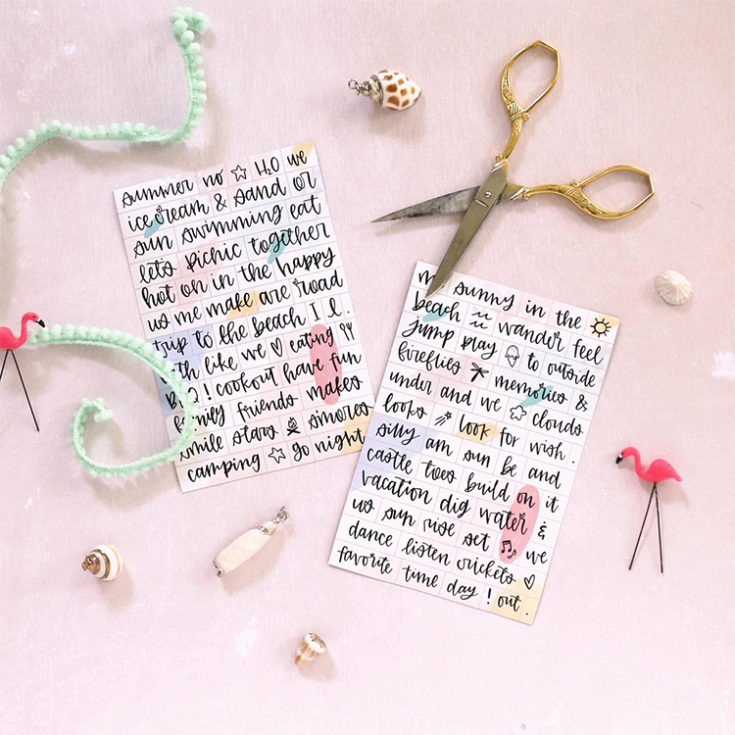 summer no ☆ H2O we
ice cream & sand or
sun swimming eat
lets picnic together
hot on in the happy
us me make are road
trip to the beach I l.
with like we ♡ eating
BBQ ! cookout have fun
family friends makes
smile stars smores
camping ☆ go night
sunny in the
beach wander feel
jump play to outside
fireflies memories &
under and we clouds
looks look for wish .
silly am sun be and
castle toes build on it
vacation dig water &
us sun rise set ♫ we
dance listen crickets ♡
favorite time day ! out .